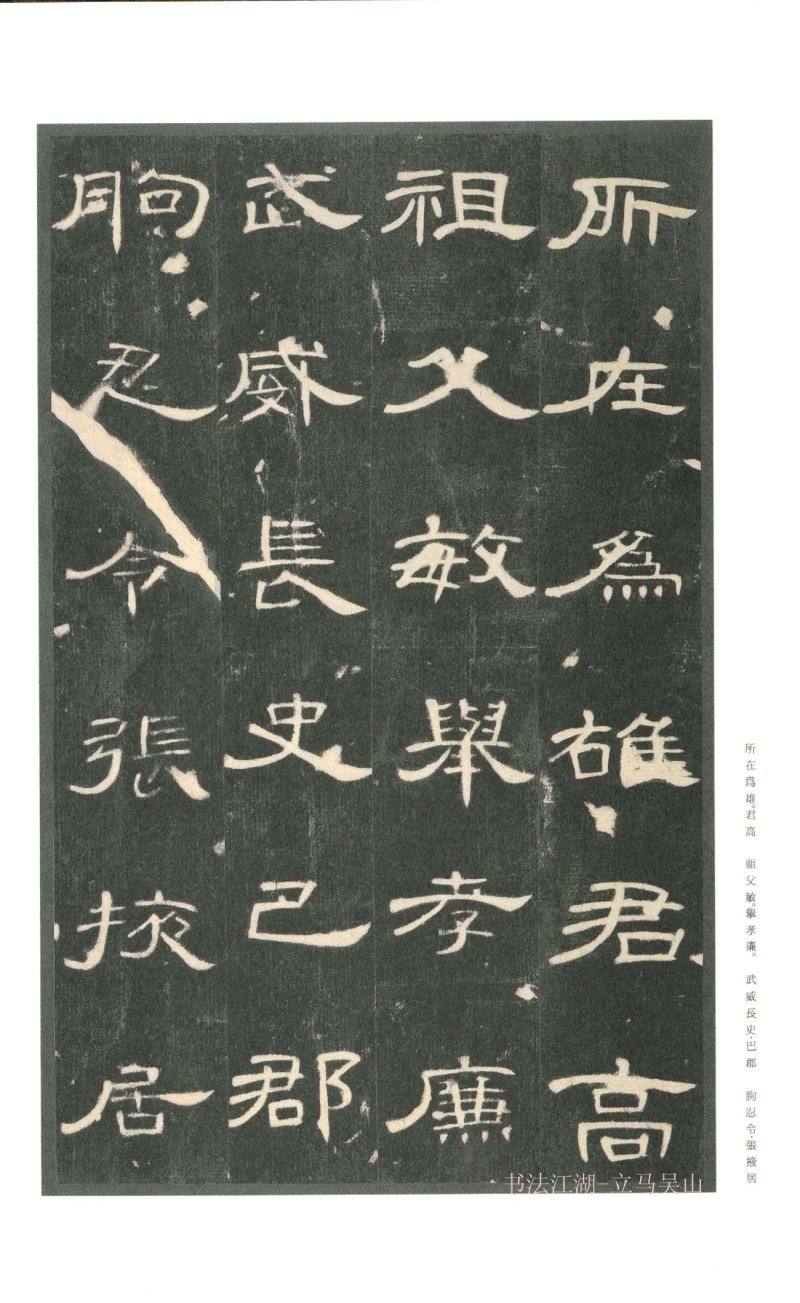 所在為雄君高
祖父敏舉孝廉
武威長史巴郡
朐忍令張掖居
所在為雄。君高　祖父敏。舉孝廉。　武威長史·巴郡　朐忍令·張掖居
书法江湖-立马吴山